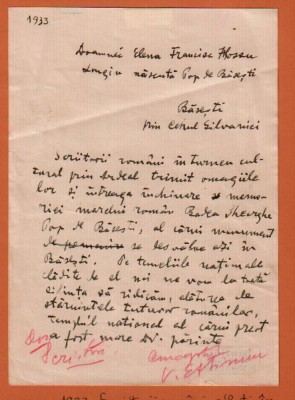 1933
Doamnei Elena Francisc Hossu
Longin născută Pop de Băsești
Băsești
prin Cehul Silvaniei
Scriitorii români în turneu cul-
tural prin Ardeal trimit omagiile
lor și întreaga închinare memo-
riei marelui român Badea Gheorghe
Pop de Băsești, al cărui monument
se desvălue azi în
Băsești. Pe temeliile naționale
clădite de el noi ne vom
silința să ridicăm, alături de
stăruințele tuturor românilor,
templul național al cărui preot
a fost more Dv. părinte
V. Eftimiu